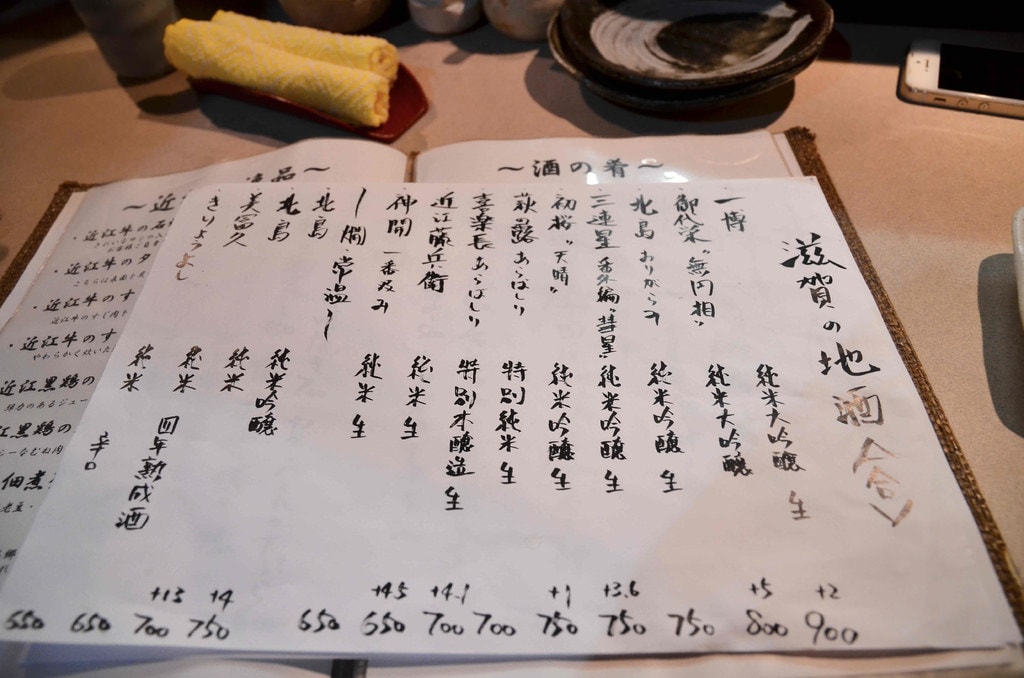 〜酒の肴〜
滋賀の地酒〈合〉
一博 純米大吟醸 生 +2 900
御代栄 "無円相" 純米大吟醸 +5 800
北島 おりがらみ 純米吟醸 生 750
三連星 番外編 "彗星" 純米吟醸 生 +3.6 750
初桜 "天晴" 純米吟醸 生 +1 750
萩乃露 あらばしり 特別純米 生 700
喜楽長 あらばしり 特別本醸造 生 +4.1 700
近江藤兵衛 純米 生 +4.5 650
仲間 一番汲み 純米 生 650
〜燗・常温〜
北島 純米吟醸 +4 750
北島 純米 +13 700
美冨久 純米 四年熟成酒 650
きりょうよし 純米 辛口 650
〜近
品〜
・近江牛の
・近江牛のタ
・近江牛のす
近江牛のすじ肉
・近江牛のす
やわらかく炊いた
近江黒鶏の
弾力のあるジュー
江黒鶏の
佃煮